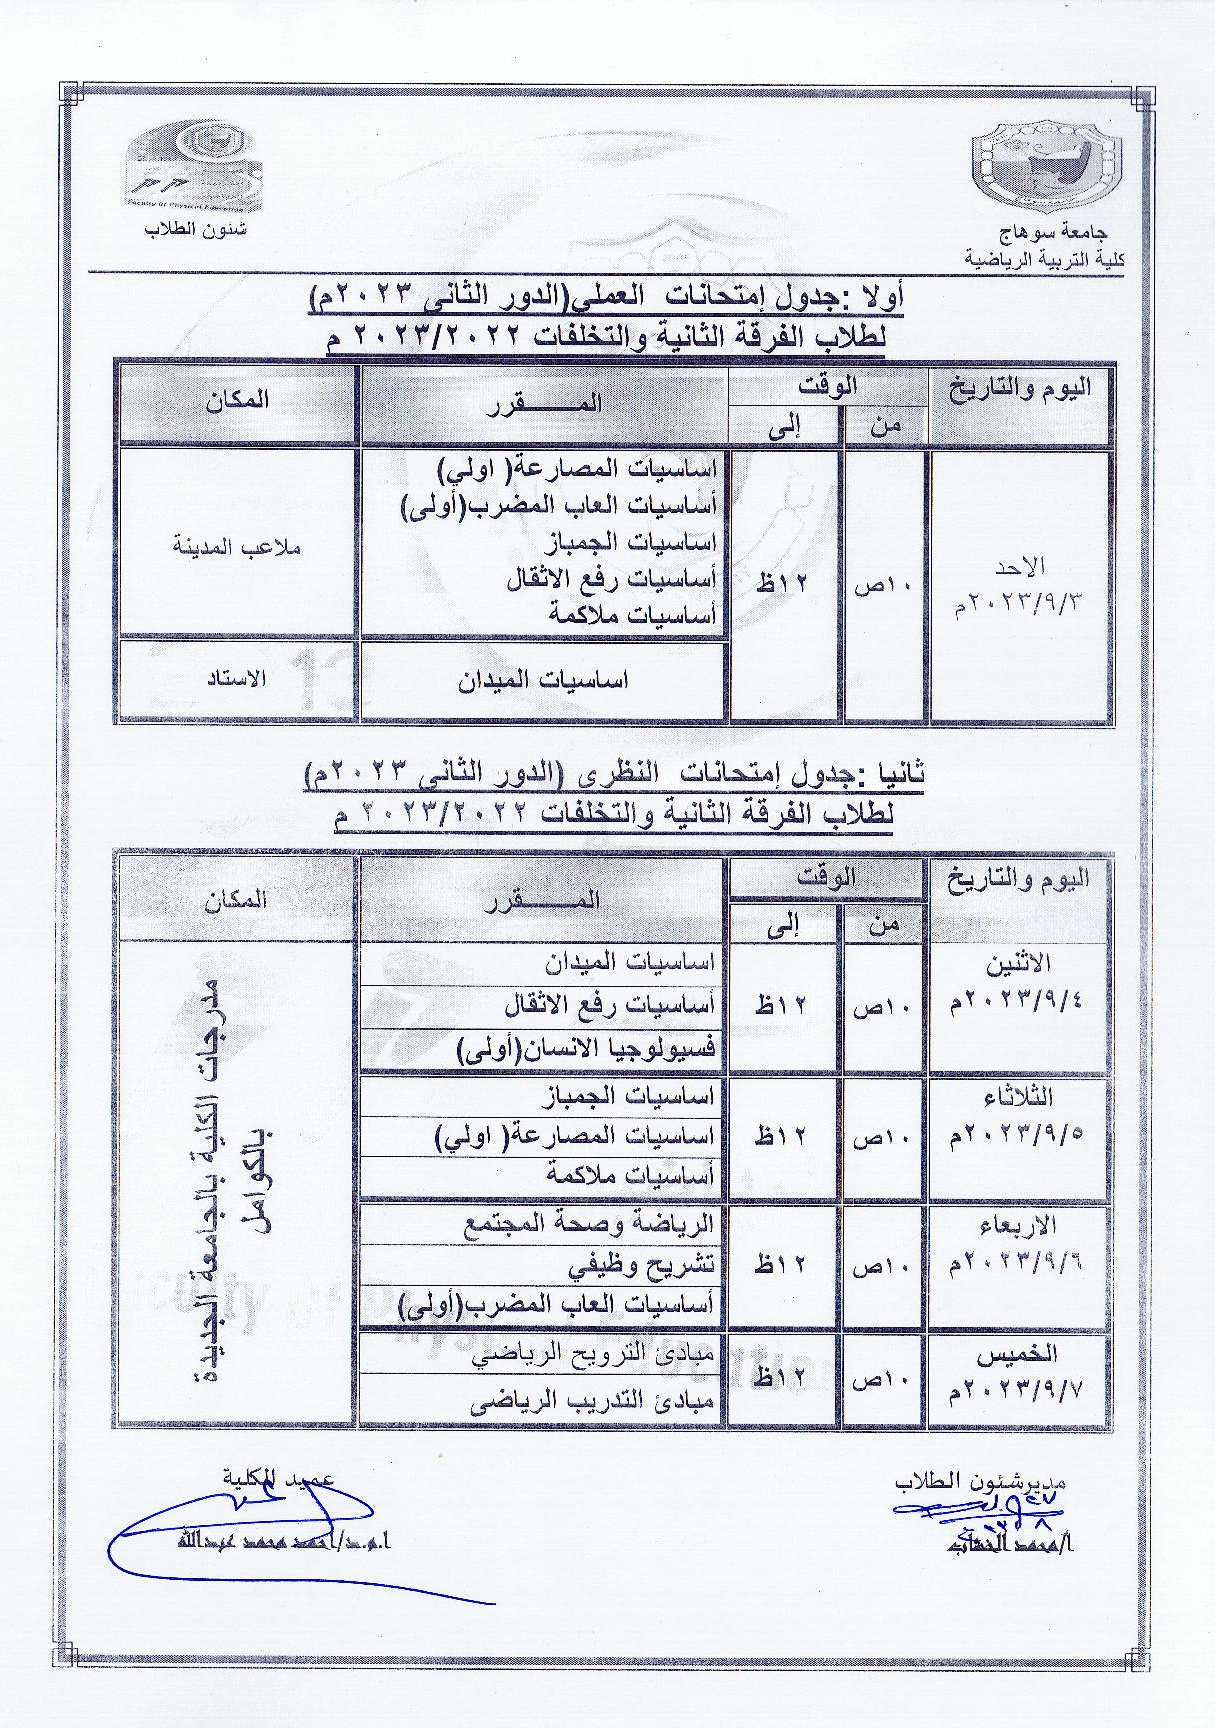 جامعة سوهاج
كلية التربية الرياضية
Faculty Of Physical Education
شئون الطلاب
أولا :جدول إمتحانات العملي(الدور الثانى ٢٠٢٣م)
لطلاب الفرقة الثانية والتخلفات ٢٠٢٣/٢٠٢٢ م
اليوم والتاريخ
الوقت
المـــــــقرر
المكان
من
إلى
الاحد
٢٠٢٣/٩/٣م
١٠ص
١٢ظ
اساسيات المصارعة( اولي)
أساسيات العاب المضرب(أولى)
اساسيات الجمباز
أساسيات رفع الاثقال
أساسيات ملاكمة
ملاعب المدينة
اساسيات الميدان
الاستاد
ثانيا :جدول إمتحانات النظرى (الدور الثانى ٢٠٢٣م)
لطلاب الفرقة الثانية والتخلفات ٢٠٢٣/٢٠٢٢ م
اليوم والتاريخ
الوقت
المـــــــقرر
المكان
من
إلى
الاثنين
٢٠٢٣/٩/٤م
١٠ص
١٢ظ
اساسيات الميدان
أساسيات رفع الاثقال
فسيولوجيا الانسان(أولى)
مدرجات الكلية بالجامعة الجديدة
بالكوامل
الثلاثاء
٢٠٢٣/٩/٥م
١٠ص
١٢ظ
اساسيات الجمباز
اساسيات المصارعة( اولي)
أساسيات ملاكمة
الاربعاء
٢٠٢٣/٩/٦م
١٠ص
١٢ظ
الرياضة وصحة المجتمع
تشريح وظيفي
أساسيات العاب المضرب(أولى)
الخميس
٢٠٢٣/٩/٧م
١٠ص
١٢ظ
مبادئ الترويح الرياضي
مبادئ التدريب الرياضى
مديرشئون الطلاب
عميد الكلية
أ/محمد
ا.م.د/احمد محمد عبدالله